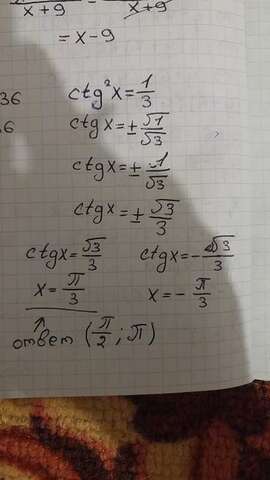 x+9 - x+9
= x-9
36
ctg²x = 1/3
6
ctgx = ± √1/√3
ctgx = ± 1/√3
ctgx = ± √3/3
ctgx = √3/3 ctgx = -√3/3
x = π/3 x = - π/3
↑
ответ (π/2 ; π)